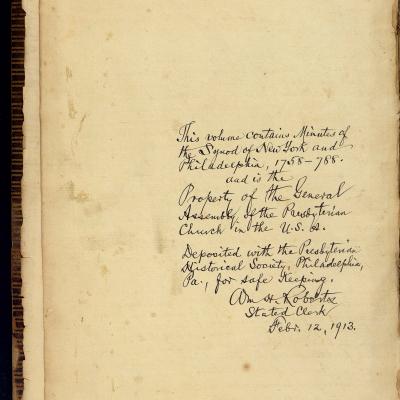 This volume contains Minutes of
the Synod of New York and
Philadelphia, 1758-788.
and is the
Property of the General
Assembly of the Presbyterian
Church in the U.S.A.
Deposited with the Presbyterian
Historical Society, Philadelphia,
Pa., for safe keeping.
Wm H. Roberts
Stated Clerk
Febr. 12, 1913.